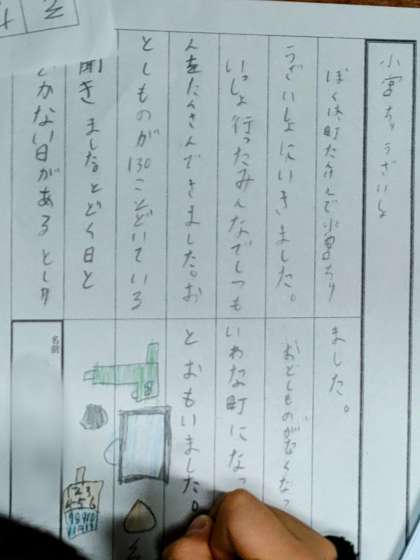 小宮ちゅうざいしょ
ぼくは町たんけんで小宮ちゅ
うざいしょにいきました。
いっしょ行ったみんなでしつも
んをたくさんできました。お
としものが130ことどいている
聞きましたとどく日と
かない日があるとしり
ました。
おとしものがなくなっ
町になっ
とおもいました。
名前